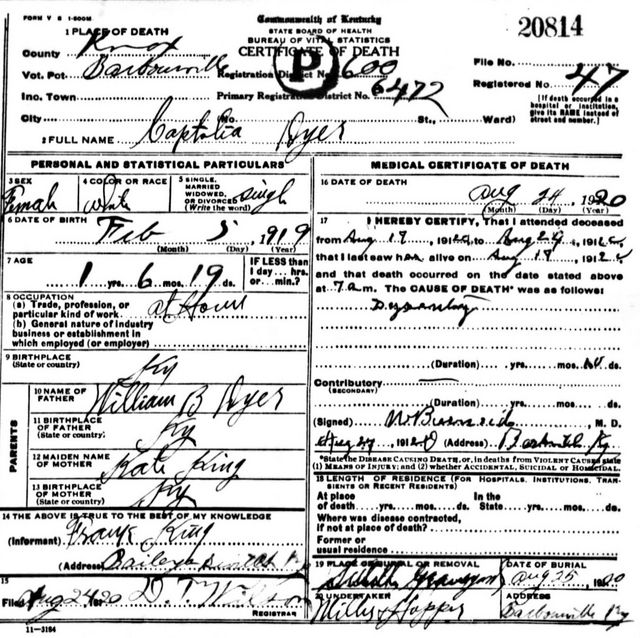 FORM V S 1-500M
Commonwealth of Kentucky
STATE BOARD OF HEALTH
BUREAU OF VITAL STATISTICS
CERTIFICATE OF DEATH
20814
1 PLACE OF DEATH
County Knox
Vot. Pct. Barbourville Registration District No. 600
File No.
Inc. Town Primary Registration District No. 6472
Registered No. 47
City (No. St., Ward)
[If death occurred in a hospital or institution, give its NAME instead of street and number.]
P
2 FULL NAME Captolia Dyer
PERSONAL AND STATISTICAL PARTICULARS
3 SEX Female
4 COLOR OR RACE White
5 SINGLE, MARRIED WIDOWED, OR DIVORCED (Write the word) Single
6 DATE OF BIRTH Feb 5, 1919
(Month) (Day) (Year)
7 AGE 1 yrs. 6 mos. 19 ds.
IF LESS than 1 day... hrs. or... min.?
8 OCCUPATION
(a) Trade, profession, or particular kind of work at Home
(b) General nature of industry business or establishment in which employed (or employer)
9 BIRTHPLACE (State or country) Ky
PARENTS
10 NAME OF FATHER William B Dyer
11 BIRTHPLACE OF FATHER (State or country) Ky
12 MAIDEN NAME OF MOTHER Kate King
13 BIRTHPLACE OF MOTHER (State or country) Ky
14 THE ABOVE IS TRUE TO THE BEST OF MY KNOWLEDGE
(Informant) Frank King
(Address)
15
Filed Aug 24 20 D. T. Wilson
REGISTRAR
11-3184
MEDICAL CERTIFICATE OF DEATH
16 DATE OF DEATH Aug 24, 1920
(Month) (Day) (Year)
17 I HEREBY CERTIFY, That I attended deceased
from Aug 17, 191 to Aug 24, 191
that I last saw h alive on Aug 19, 191
and that death occurred on the date stated above
at 7 a.m. The CAUSE OF DEATH* was as follows:
Dysentery
(Duration) yrs. mos. ds.
Contributory
(SECONDARY)
(Duration) yrs. mos. ds.
(Signed) M. D.
191 (Address) Ky
*State the DISEASE CAUSING DEATH, or, in deaths from VIOLENT CAUSES state
(1) MEANS OF INJURY; and (2) whether ACCIDENTAL, SUICIDAL or HOMICIDAL.
18 LENGTH OF RESIDENCE (FOR HOSPITALS, INSTITUTIONS, TRANSIENTS OR RECENT RESIDENTS)
At place of death yrs. mos. ds. In the State yrs. mos. ds.
Where was disease contracted, if not at place of death?
Former or usual residence
19 PLACE OF BURIAL OR REMOVAL
DATE OF BURIAL Aug 25, 1920
20 UNDERTAKER Miller Hopper
ADDRESS Barbourville Ky